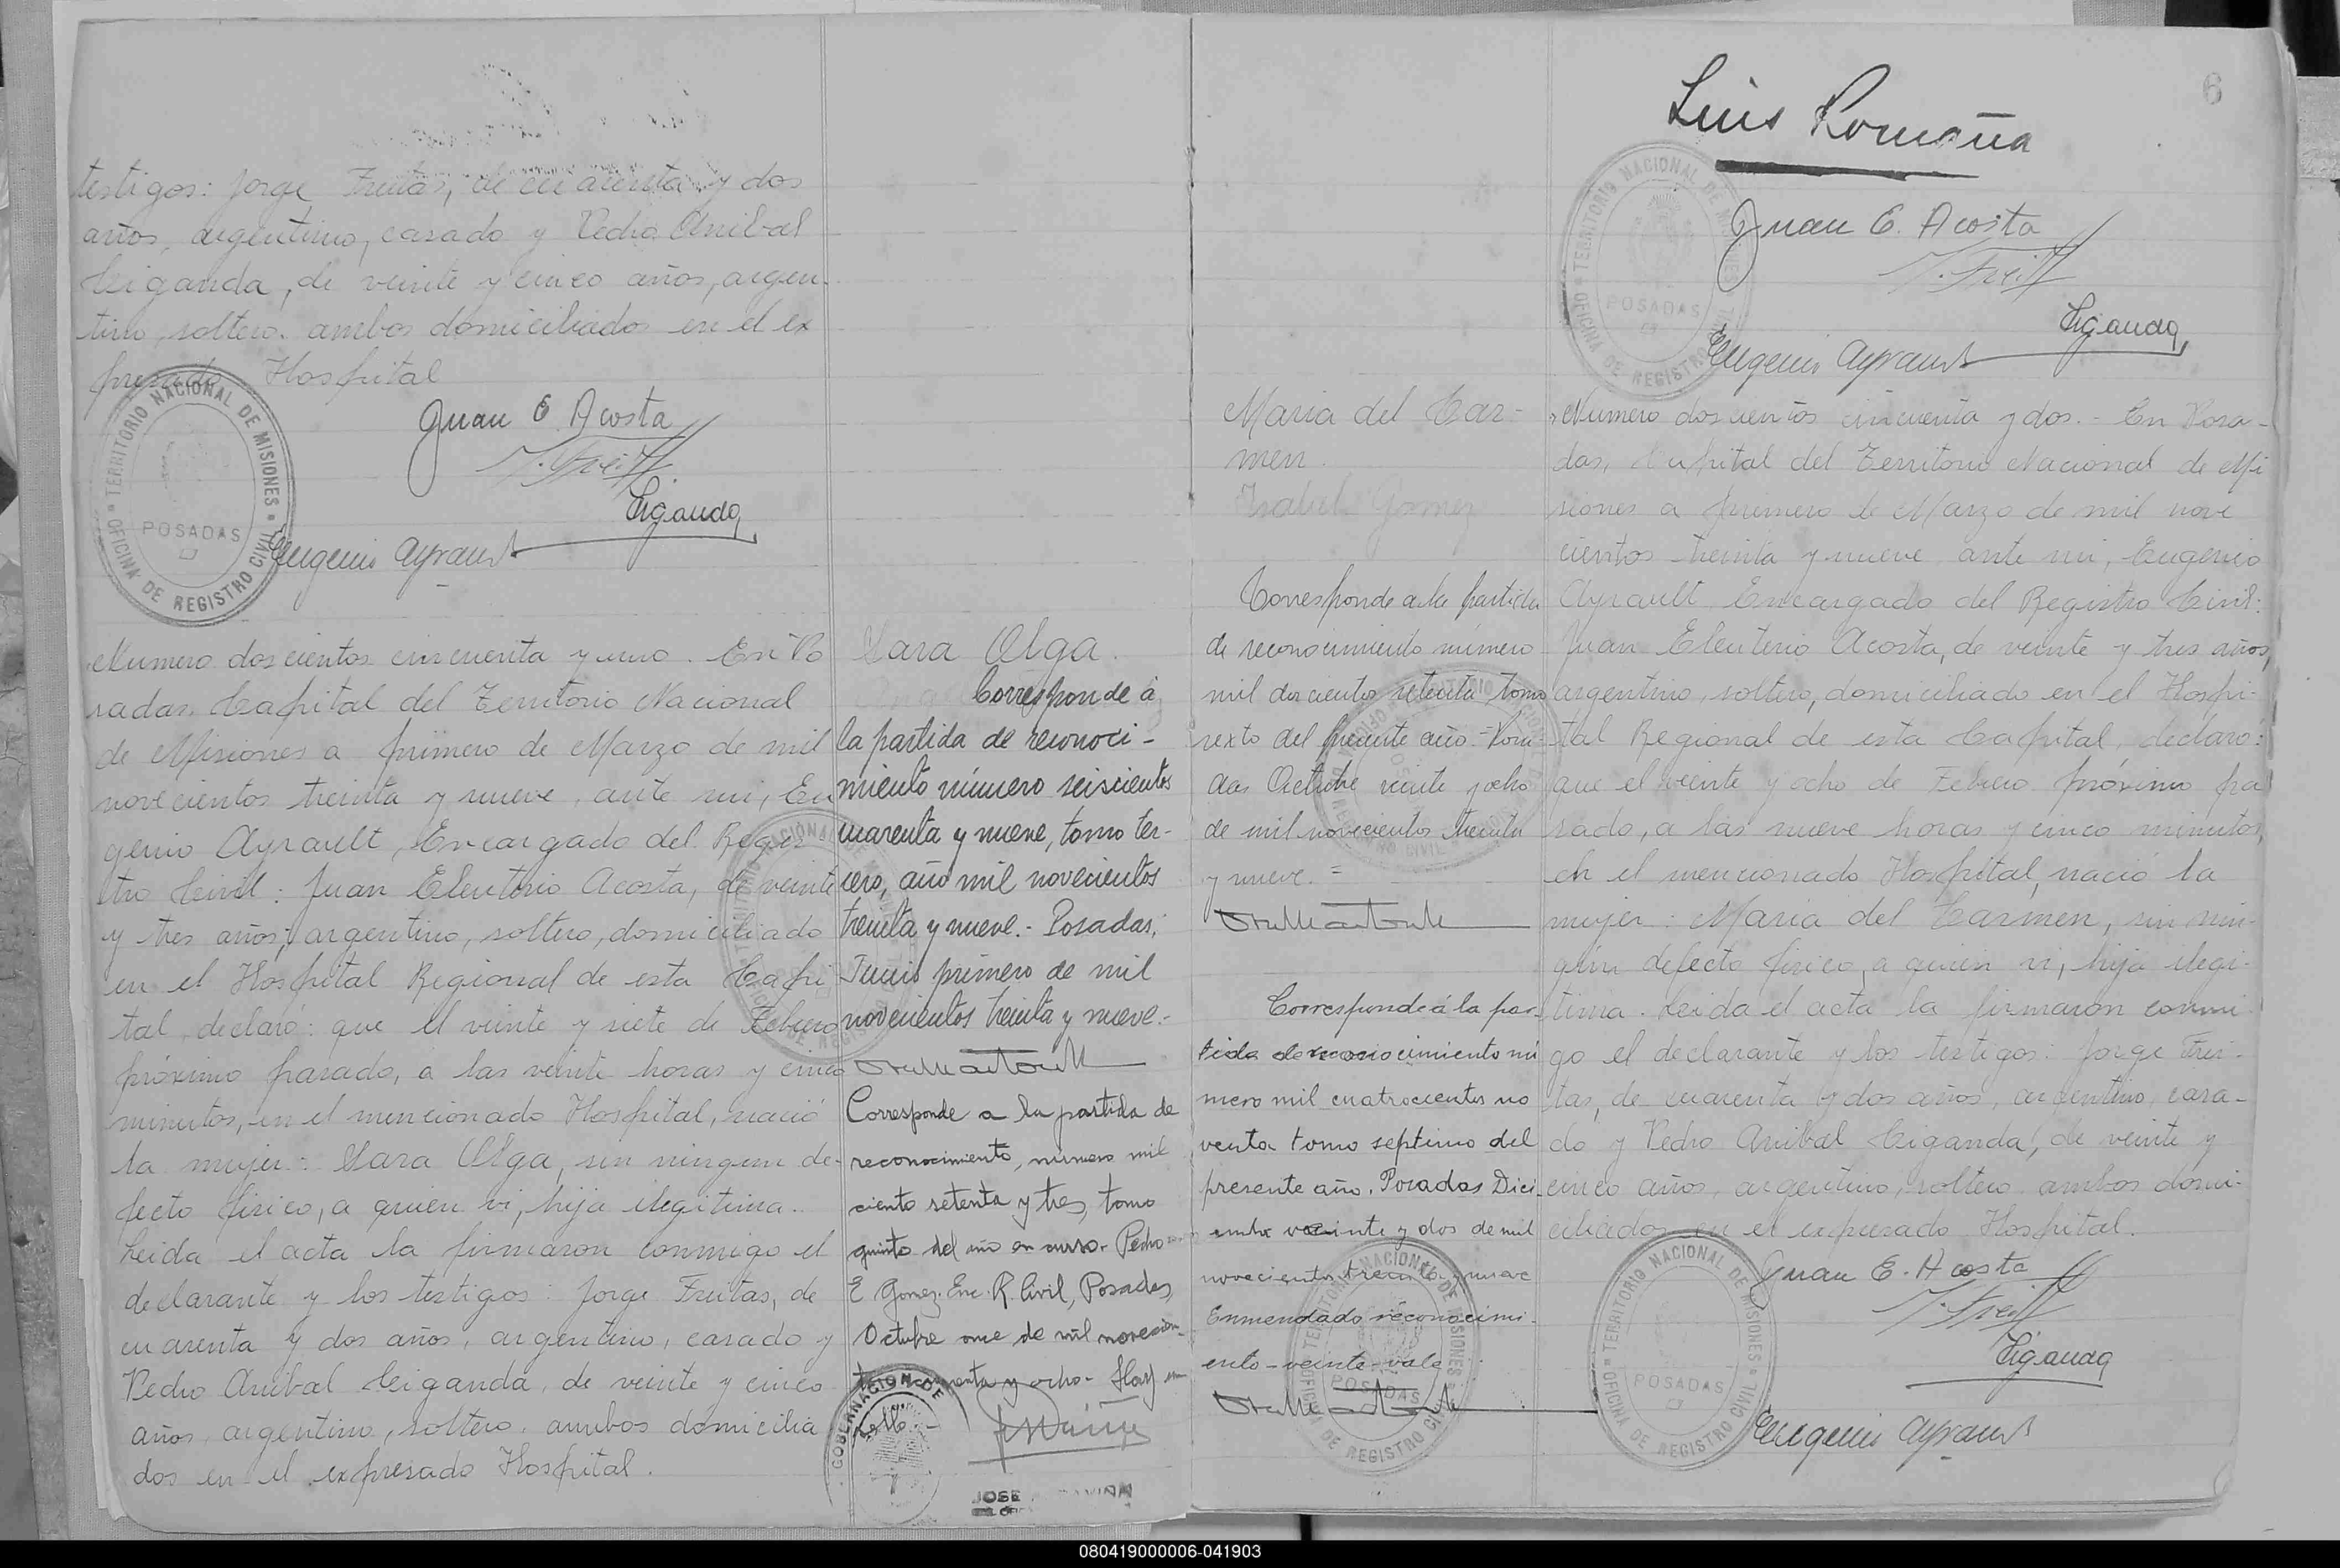 testigos: Jorge Freitas, de cuarenta y dos
años, argentino, casado y Pedro Anibal
Ciganda, de veinte y cinco años, argen-
tino, soltero. ambos domiciliados en el ex
presado Hospital
Juan E Acosta
J. Freit
Ciganda
Eugenio Ayrault
TERRITORIO NACIONAL DE MISIONES
POSADAS
OFICINA DE REGISTRO CIVIL
Numero doscientos cincuenta y uno. En Po
sadas, Capital del Territorio Nacional
de Misiones a primero de Marzo de mil
novecientos treinta y nueve, ante mi, Eu
genio Ayrault, Encargado del Regis
tro Civil: Juan Eleuterio Acosta, de veinte
y tres años, argentino, soltero, domiciliado
en el Hospital Regional de esta Capi
tal, declaró: que el veinte y siete de Febrero
próximo pasado, a las veinte horas y cinco
minutos, en el mencionado Hospital, nació
la mujer: Sara Olga, sin ningun de-
fecto fisico, a quien vi, hija ilegitima.
Leida el acta la firmaron conmigo el
declarante y los testigos: Jorge Freitas, de
cuarenta y dos años, argentino, casado y
Pedro Anibal Ciganda, de veinte y cinco
años, argentino, soltero. ambos domicilia
dos en el expresado Hospital.
Sara Olga.
Corresponde á
la partida de reconoci-
miento número seiscientos
cuarenta y nueve, tomo ter-
cero, año mil novecientos
treinta y nueve.- Posadas,
Junio primero de mil
novecientos treinta y nueve.-
Corresponde a la partida de
reconocimiento, número mil
ciento setenta y tres, tomo
quinto del año en curso. Pedro
E Gomez. Enc. R. Civil, Posadas,
Octubre once de mil novecien-
y ocho-
GOBERNACION DE
JOSE
Maria del Car-
men.
Isabel Gomez
Corresponde a la partida
de reconocimiento número
mil doscientos setenta tomo
sexto del presente año.- Posa-
das Octubre veinte y ocho
de mil novecientos treinta
y nueve. =
Corresponde á la par-
tida de reconocimiento nú
mero mil cuatrocientos no
venta tomo septimo del
presente año. Posadas Dici-
embre veinte y dos de mil
novecientos treinta y nueve
Enmendado reconocimi-
ento-veinte-vale
TERRITORIO NACIONAL DE MISIONES
POSADAS
OFICINA DE REGISTRO CIVIL
6
Luis Romaña
TERRITORIO NACIONAL DE MISIONES
POSADAS
OFICINA DE REGISTRO CIVIL
Juan E. Acosta
J. Freit
Ciganda
Eugenio Ayrault
Numero doscientos cincuenta y dos.- En Posa-
das, Capital del Territorio Nacional de Mi
siones a primero de Marzo de mil nove
cientos treinta y nueve ante mi, Eugenio
Ayrault, Encargado del Registro Civil:
Juan Eleuterio Acosta, de veinte y tres años,
argentino, soltero, domiciliado en el Hospi-
tal Regional de esta Capital, declaró:
que el veinte y ocho de Febrero próximo pa
sado, a las nueve horas y cinco minutos,
en el mencionado Hospital, nació la
mujer: Maria del Carmen, sin nin-
gún defecto fisico, a quien vi, hija ilegi-
tima. Leida el acta la firmaron conmi
go el declarante y los testigos: Jorge Frei-
tas, de cuarenta y dos años, argentino, casa-
do y Pedro Anibal Ciganda, de veinte y
cinco años, argentino, soltero. ambos domi-
ciliados en el expresado Hospital.
TERRITORIO NACIONAL DE MISIONES
POSADAS
OFICINA DE REGISTRO CIVIL
Juan E. Acosta
J. Freit
Ciganda
Eugenio Ayrault
080419000006-041903